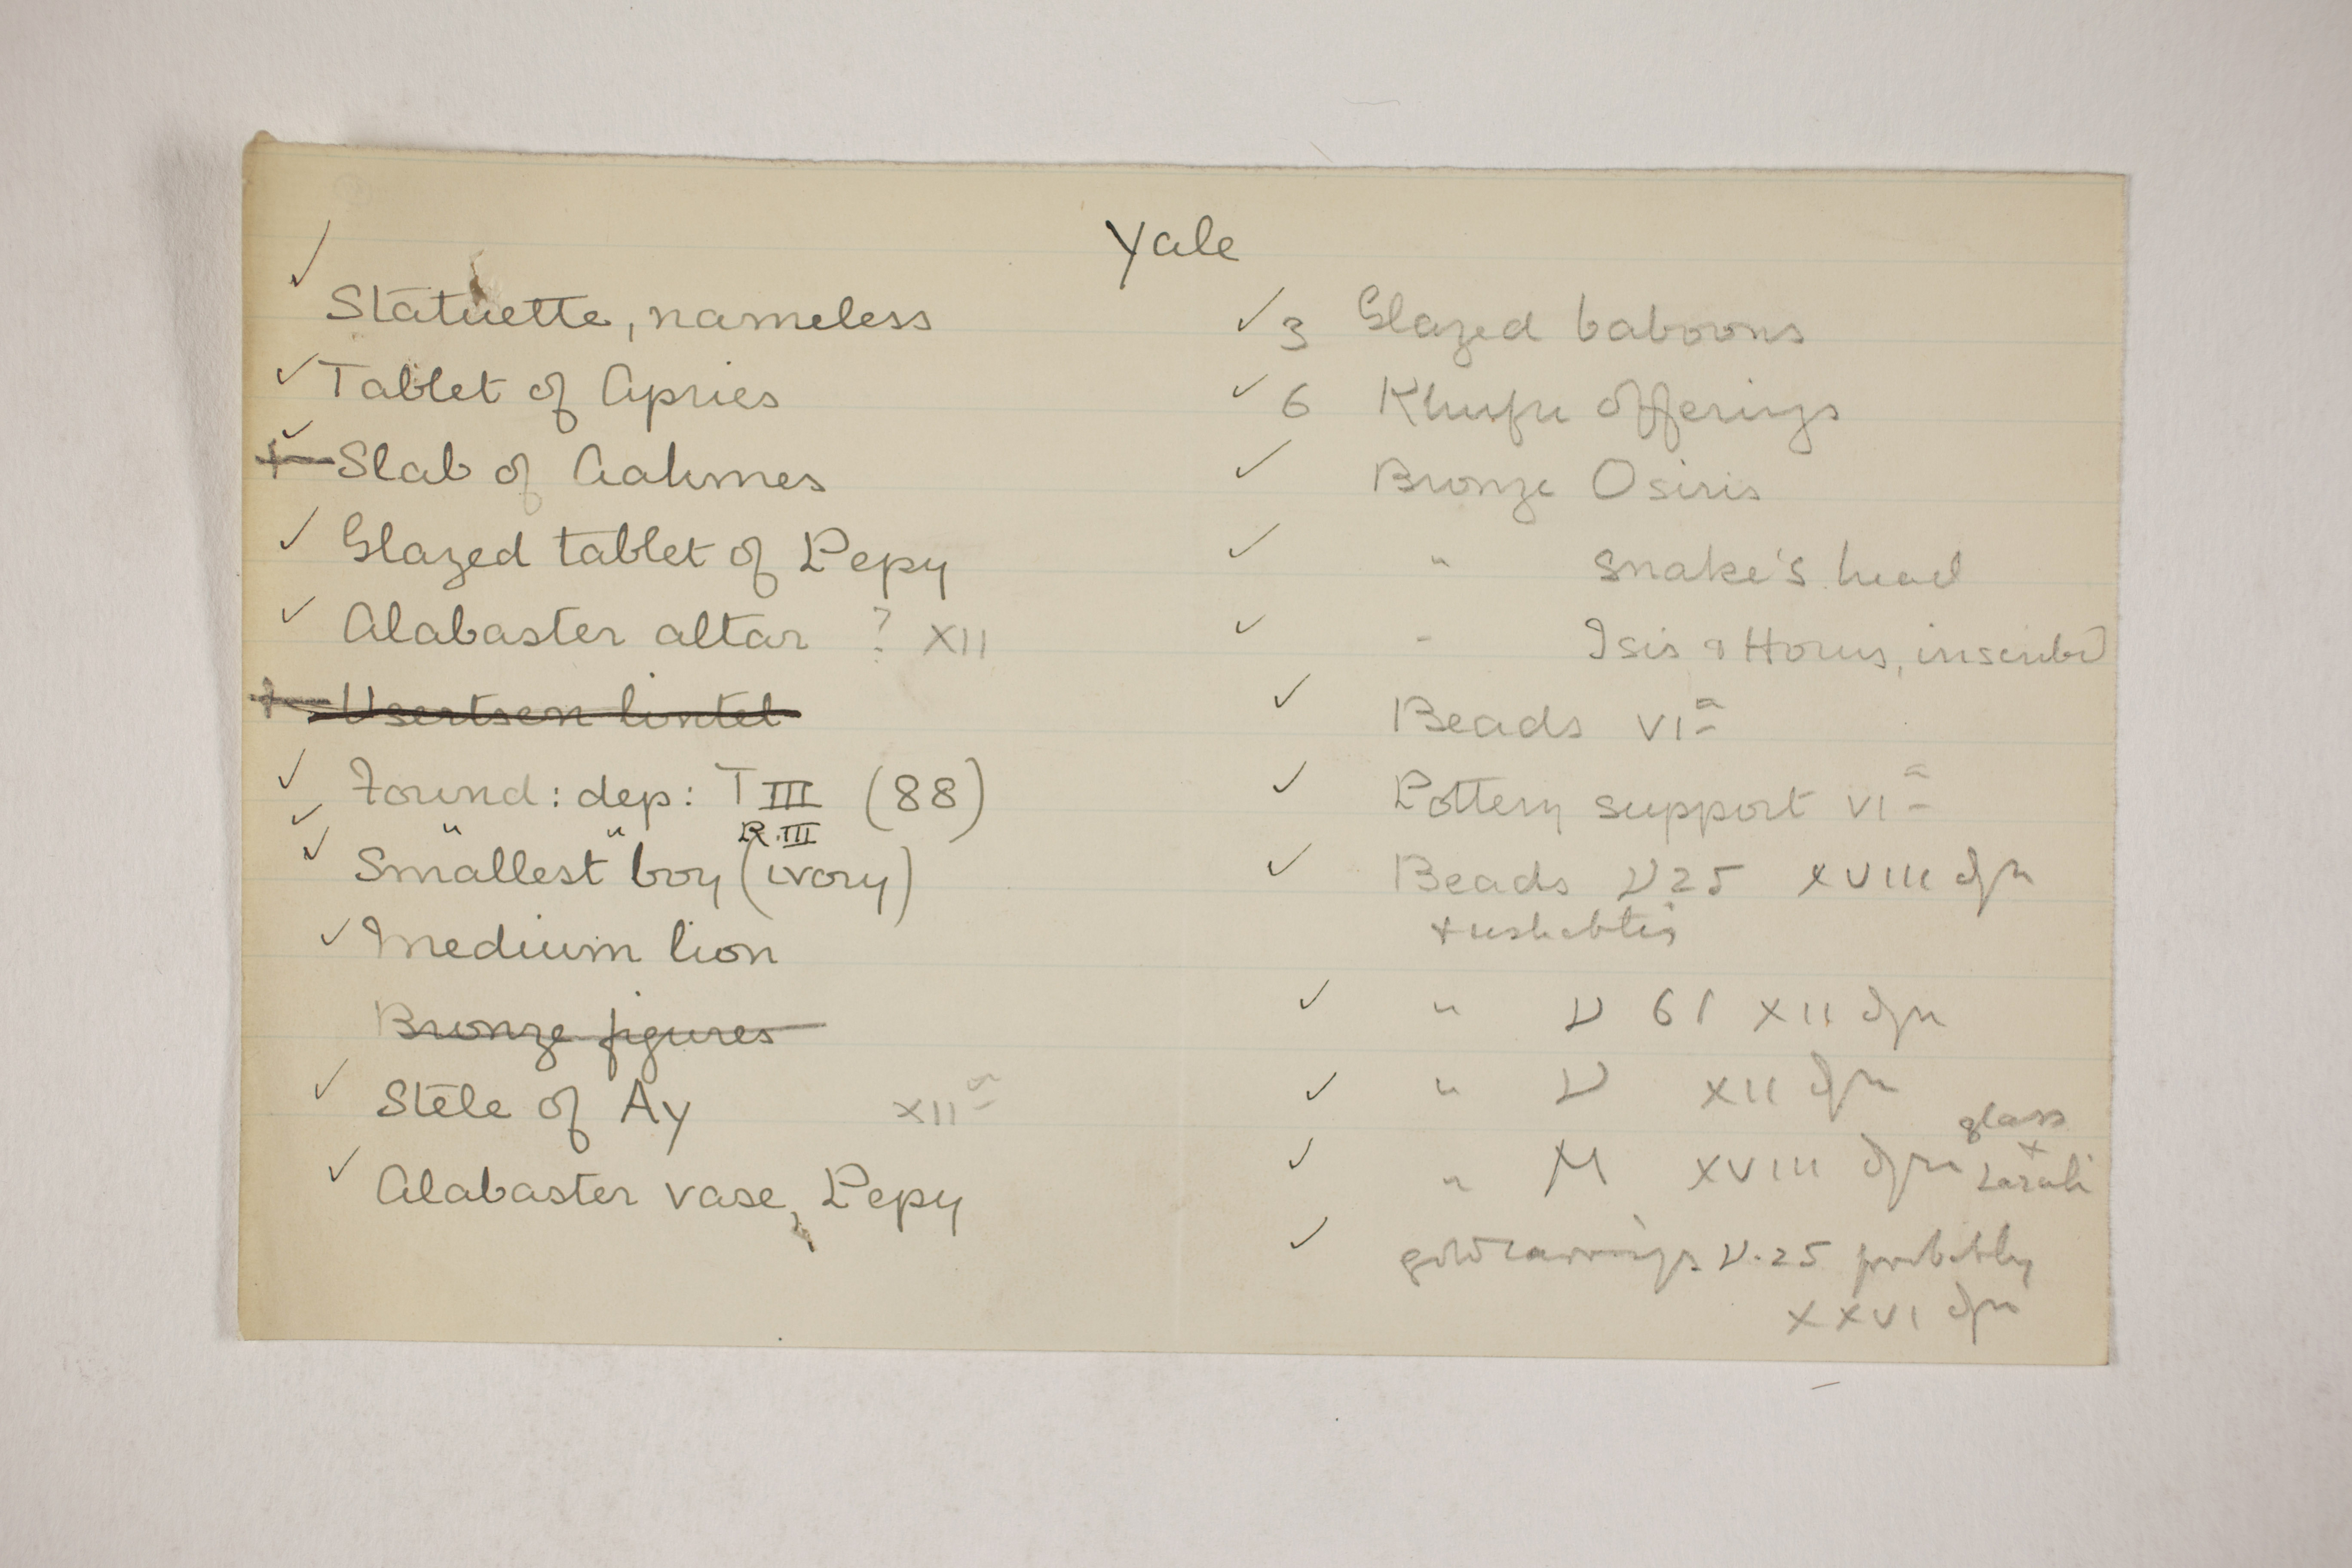 Yale
✓ Statuette, nameless
✓ Tablet of Apries
✓ Slab of Aahmes
✓ Glazed tablet of Pepy
✓ Alabaster altar ? XII
Usertsen lintel
✓ Found: dep: T III (88)
✓ " " R. III
✓ Smallest boy (ivory)
✓ Medium lion
Bronze figures
✓ Stele of Ay XIIa
✓ Alabaster vase, Pepy
✓ 3 Glazed baboons
✓ 6 Khufu offerings
✓ Bronze Osiris
✓ " snake's head
✓ " Isis & Horus, inscribd
✓ Beads VIa
✓ Pottery support VIa
✓ Beads V 25 XVIII dyn
+ ushabtis
✓ " V 61 XII dyn
✓ " V XII dyn
✓ " M XVIII dyn glass
+
✓ gold earrings V.25 probably
XXVI dyn